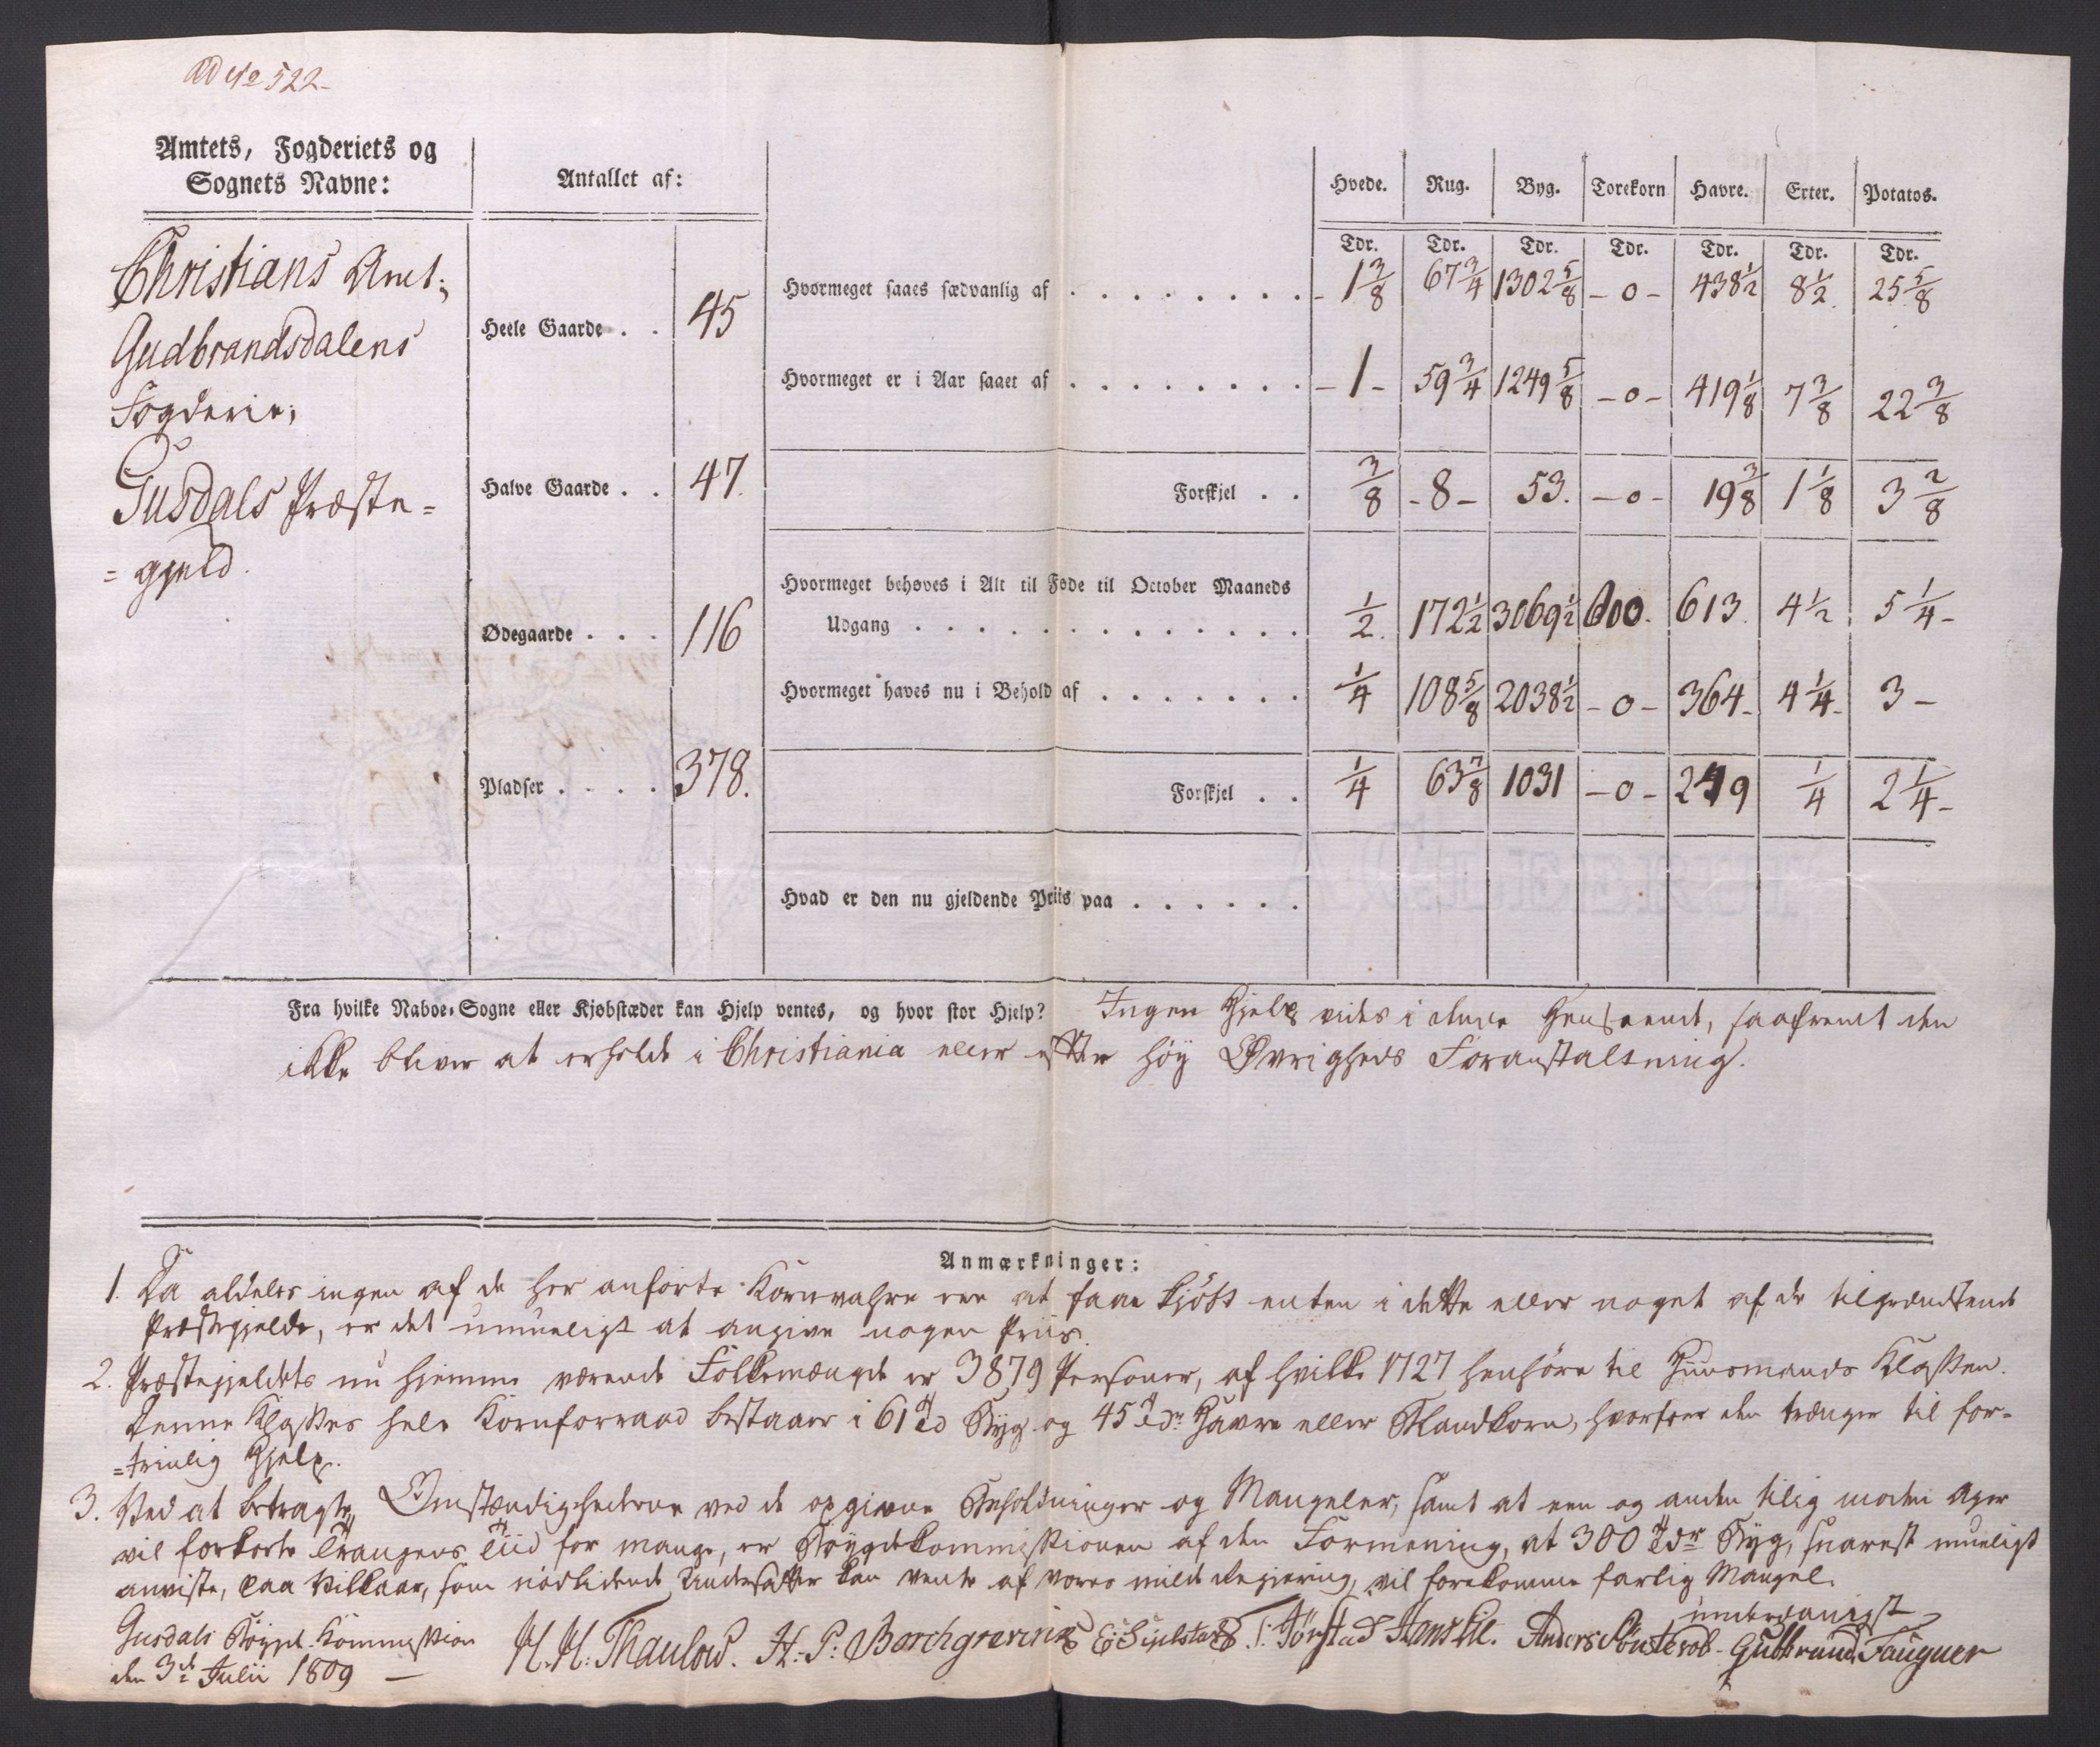 ad No 522
Amtets, Fogderiets og
Sognets Navne:
Antallet af:
Hvede. Rug. Byg. Torekorn Havre. Erter. Potatos.
Tdr. Tdr. Tdr. Tdr. Tdr. Tdr. Tdr.
Christians Amt;
Gudbrandsdalens
Fogderie;
Gusdals Præste-
= gjeld.
Heele Gaarde . . 45
Halve Gaarde . . 47.
Ødegaarde . . . 116
Pladser . . . . 378.
Hvormeget saaes sædvanlig af . . . . . . . . - 1 3/8 67 3/4 1302 5/8 - 0 - 438 1/2 8 1/2. 25 5/8
Hvormeget er i Aar saaet af . . . . . . . . - 1 - 59 3/4 1249 5/8 - 0 - 419 1/8 7 3/8 22 3/8
Forskjel . . 3/8 - 8 - 53. - 0 - 19 3/8 1 1/8 3 2/8
Hvormeget behøves i Alt til Føde til October Maaneds
Udgang . . . . . . . . . . . . . 1/2. 172 1/2 3069 1/2 600. 613. 4 1/2 5 1/4 -
Hvormeget haves nu i Behold af . . . . . . . 1/4 108 5/8 2038 1/2 - 0 - 364 - 4 1/4 - 3 -
Forskjel . . 1/4 63 7/8 1031 - 0 - 249 1/4 2 1/4 -
Hvad er den nu gjeldende Priis paa . . . . . .
Fra hvilke Naboe-Sogne eller Kjøbstæder kan Hjelp ventes, og hvor stor Hjelp? Ingen Hjelp vides i denne Henseende, saafremt den
ikke bliver at erholde i Christiania eller efter høy Øvrigheds Foranstaltning.
Anmærkninger:
1. Da aldeles ingen af de her anførte Kornvahre ere at faae kjøbt enten i dette eller noget af de tilgrændsende
Præstegjelde, er det umueligt at angive nogen Priis.
2. Præstegjeldets nu hjemme værende Folkemængde er 3879 Personer, af hvilke 1727 henhøre til Huusmands Klassen.
Denne Klasses hele Kornforraad bestaaer i 61 Td Byg og 45 Tdr Havre eller Blandkorn, hvorfore den trænger til for-
=trinlig Hjelp.
3. Ved at betragte Omstændighederne ved de opgivne Beholdninger og Mangeler, samt at een og anden tilig moden Ager
vil forkorte Trangens Tiid for mange, er Bøygdekommissionen af den Formening, at 300 Tdr Byg, snarest mueligt
anviste, paa Vilkaar, som nødlidende Undersatter kan vente af vores milde Regiering, vil forekomme farlig Mangel.
underdanigst
Gusdals Bøygde-Kommission
den 3de Julii 1809 —
H. H. Thaulow. H. P. Borchgrevink E: Sijelstad T: Jørstad Hans Lie. Anders Gudbrand Fougner